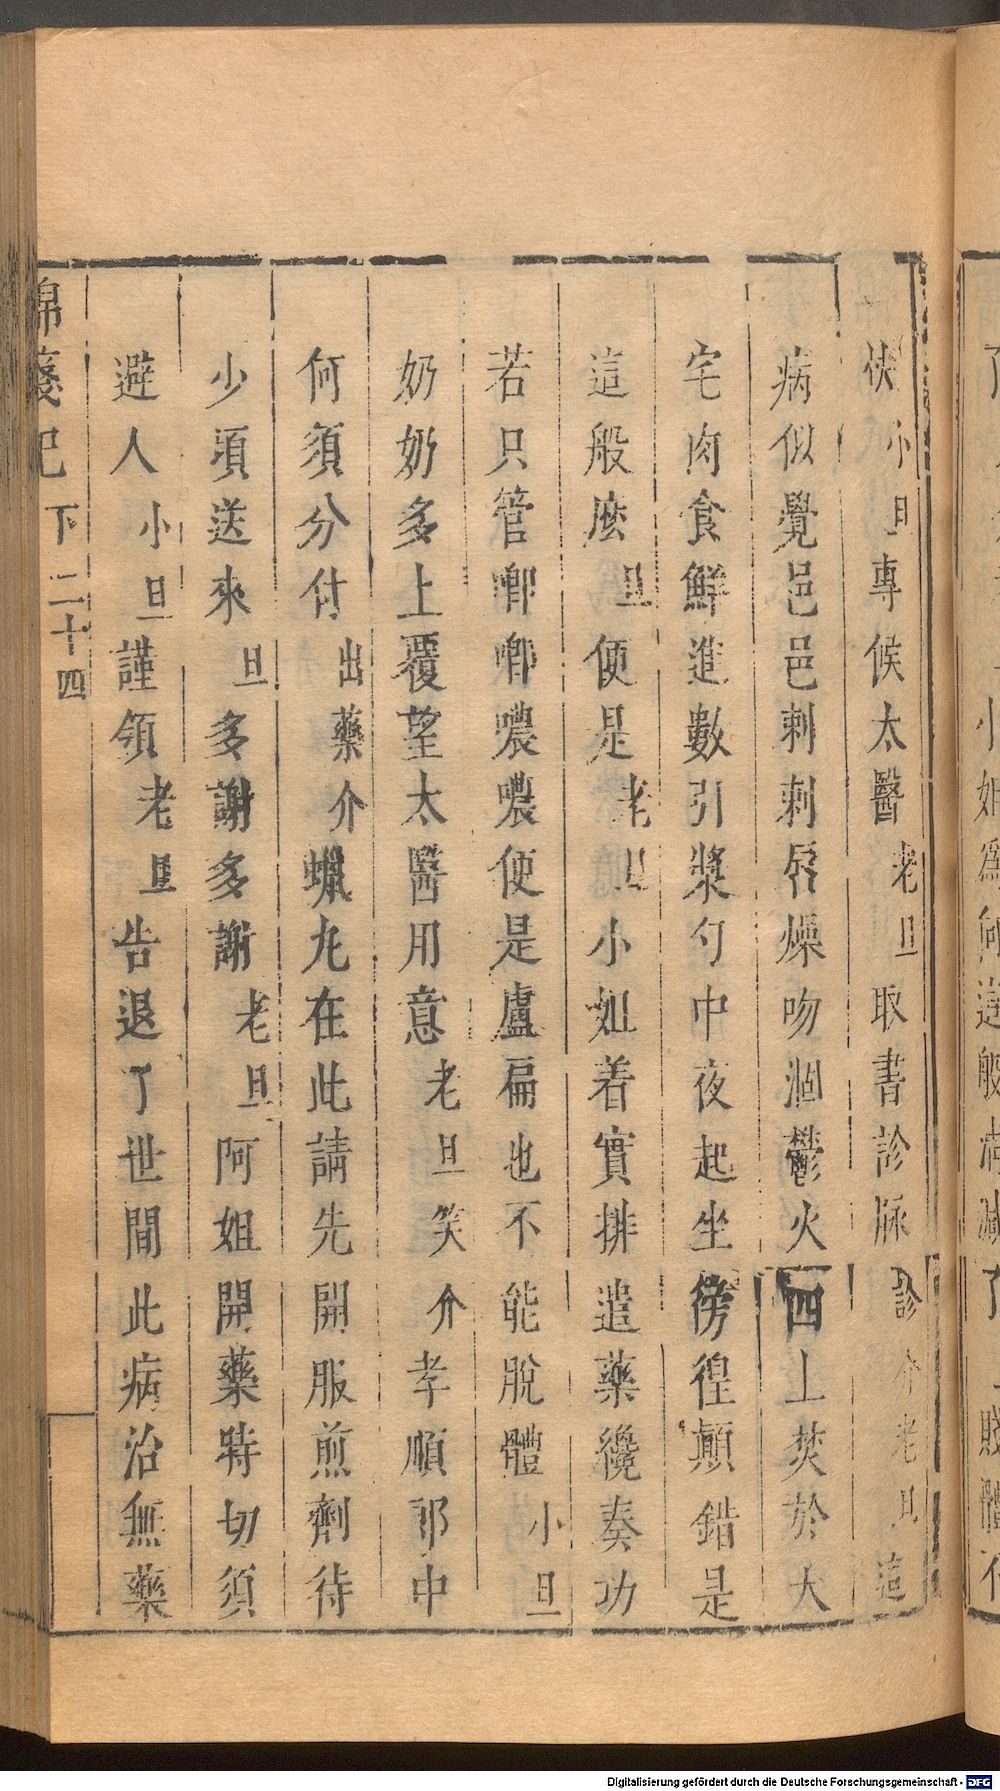 快小旦專候太醫老旦取書診脉診介老旦這
病似覺邑邑剌剌唇燥吻涸鬱火四上焚於大
宅肉食鮮進數引漿勺中夜起坐徬徨顛錯是
這般麽旦便是老旦小姐着實排遣藥纔奏功
若只管唧唧噥噥便是盧扁也不能脫體小旦
奶奶多上覆望太醫用意老旦笑介孝順那中
何須分付出藥介蠟丸在此請先開服煎劑待
少頃送來旦多謝多謝老旦阿姐開藥時切須
避人小旦謹領老旦告退了世間此病治無藥
錦箋記 下 二十四
小姐爲何這般淸減了
賤體不
Digitalisierung gefördert durch die Deutsche Forschungsgemeinschaft - DFG